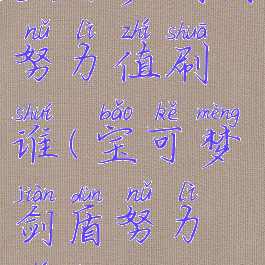 nǔ lì zhí shuā
努力值刷
shuí bǎo kě mèng
谁(宝可梦
jiàn dùn nǔ lì
剑盾努力